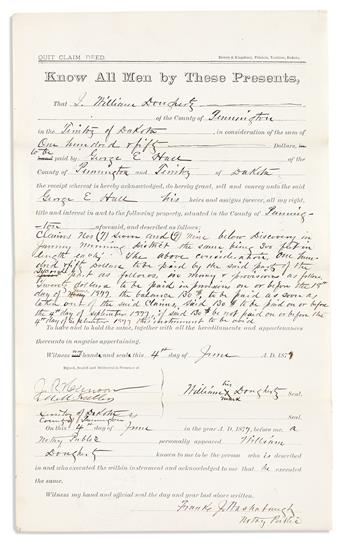 QUIT CLAIM DEED.
Know All Men by These Presents,
That I William Dougherty
of the County of Pennington
in the Territory of Dakota, in consideration of the sum of
One hundred & fifty Dollars,
to be paid by George E Hall of the
County of Pennington and Territory of Dakota
the receipt whereof is hereby acknowledged, do hereby grant, sell and convey unto the said
George E Hall his heirs and assigns forever, all my right,
title and interest in and to the following property, situated in the County of Penning-
ton aforesaid, and described as follows:
Claims Nos (7) Seven and (9) Nine below Discovery in
mining district the same being 300 feet in
length each. The above consideration One hun-
dred fifty Dollars to be paid by the said party of the
as follows, in Money & provisions as follows
Twenty dollars to be paid in provision on or before the 18th
day of 1877. the balance 130 to be paid as soon as
taken out of the said Claims, said 130 to be paid on or before
the 4th day of September 1877, if said be not paid on or before the
4th day of September 1877 this instrument to be void.
To have and to hold the same, together with all the hereditaments and appurtenances
thereunto in anywise appertaining.
Witness my hand and seal this 4th day of June A. D. 1877
Signed, Sealed and Delivered in Presence of
William his mark Dougherty Seal.
Seal.
Territory of Dakota ss
County of Pennington
On this 4th day of June in the year A. D. 1877, before me a
Notary Public personally appeared William
Dougherty known to me to be the person who is described
in and who executed the within instrument and acknowledged to me that he executed
the same.
Witness my hand and official seal the day and year last above written.
Frank J. Washabaugh
Notary Public